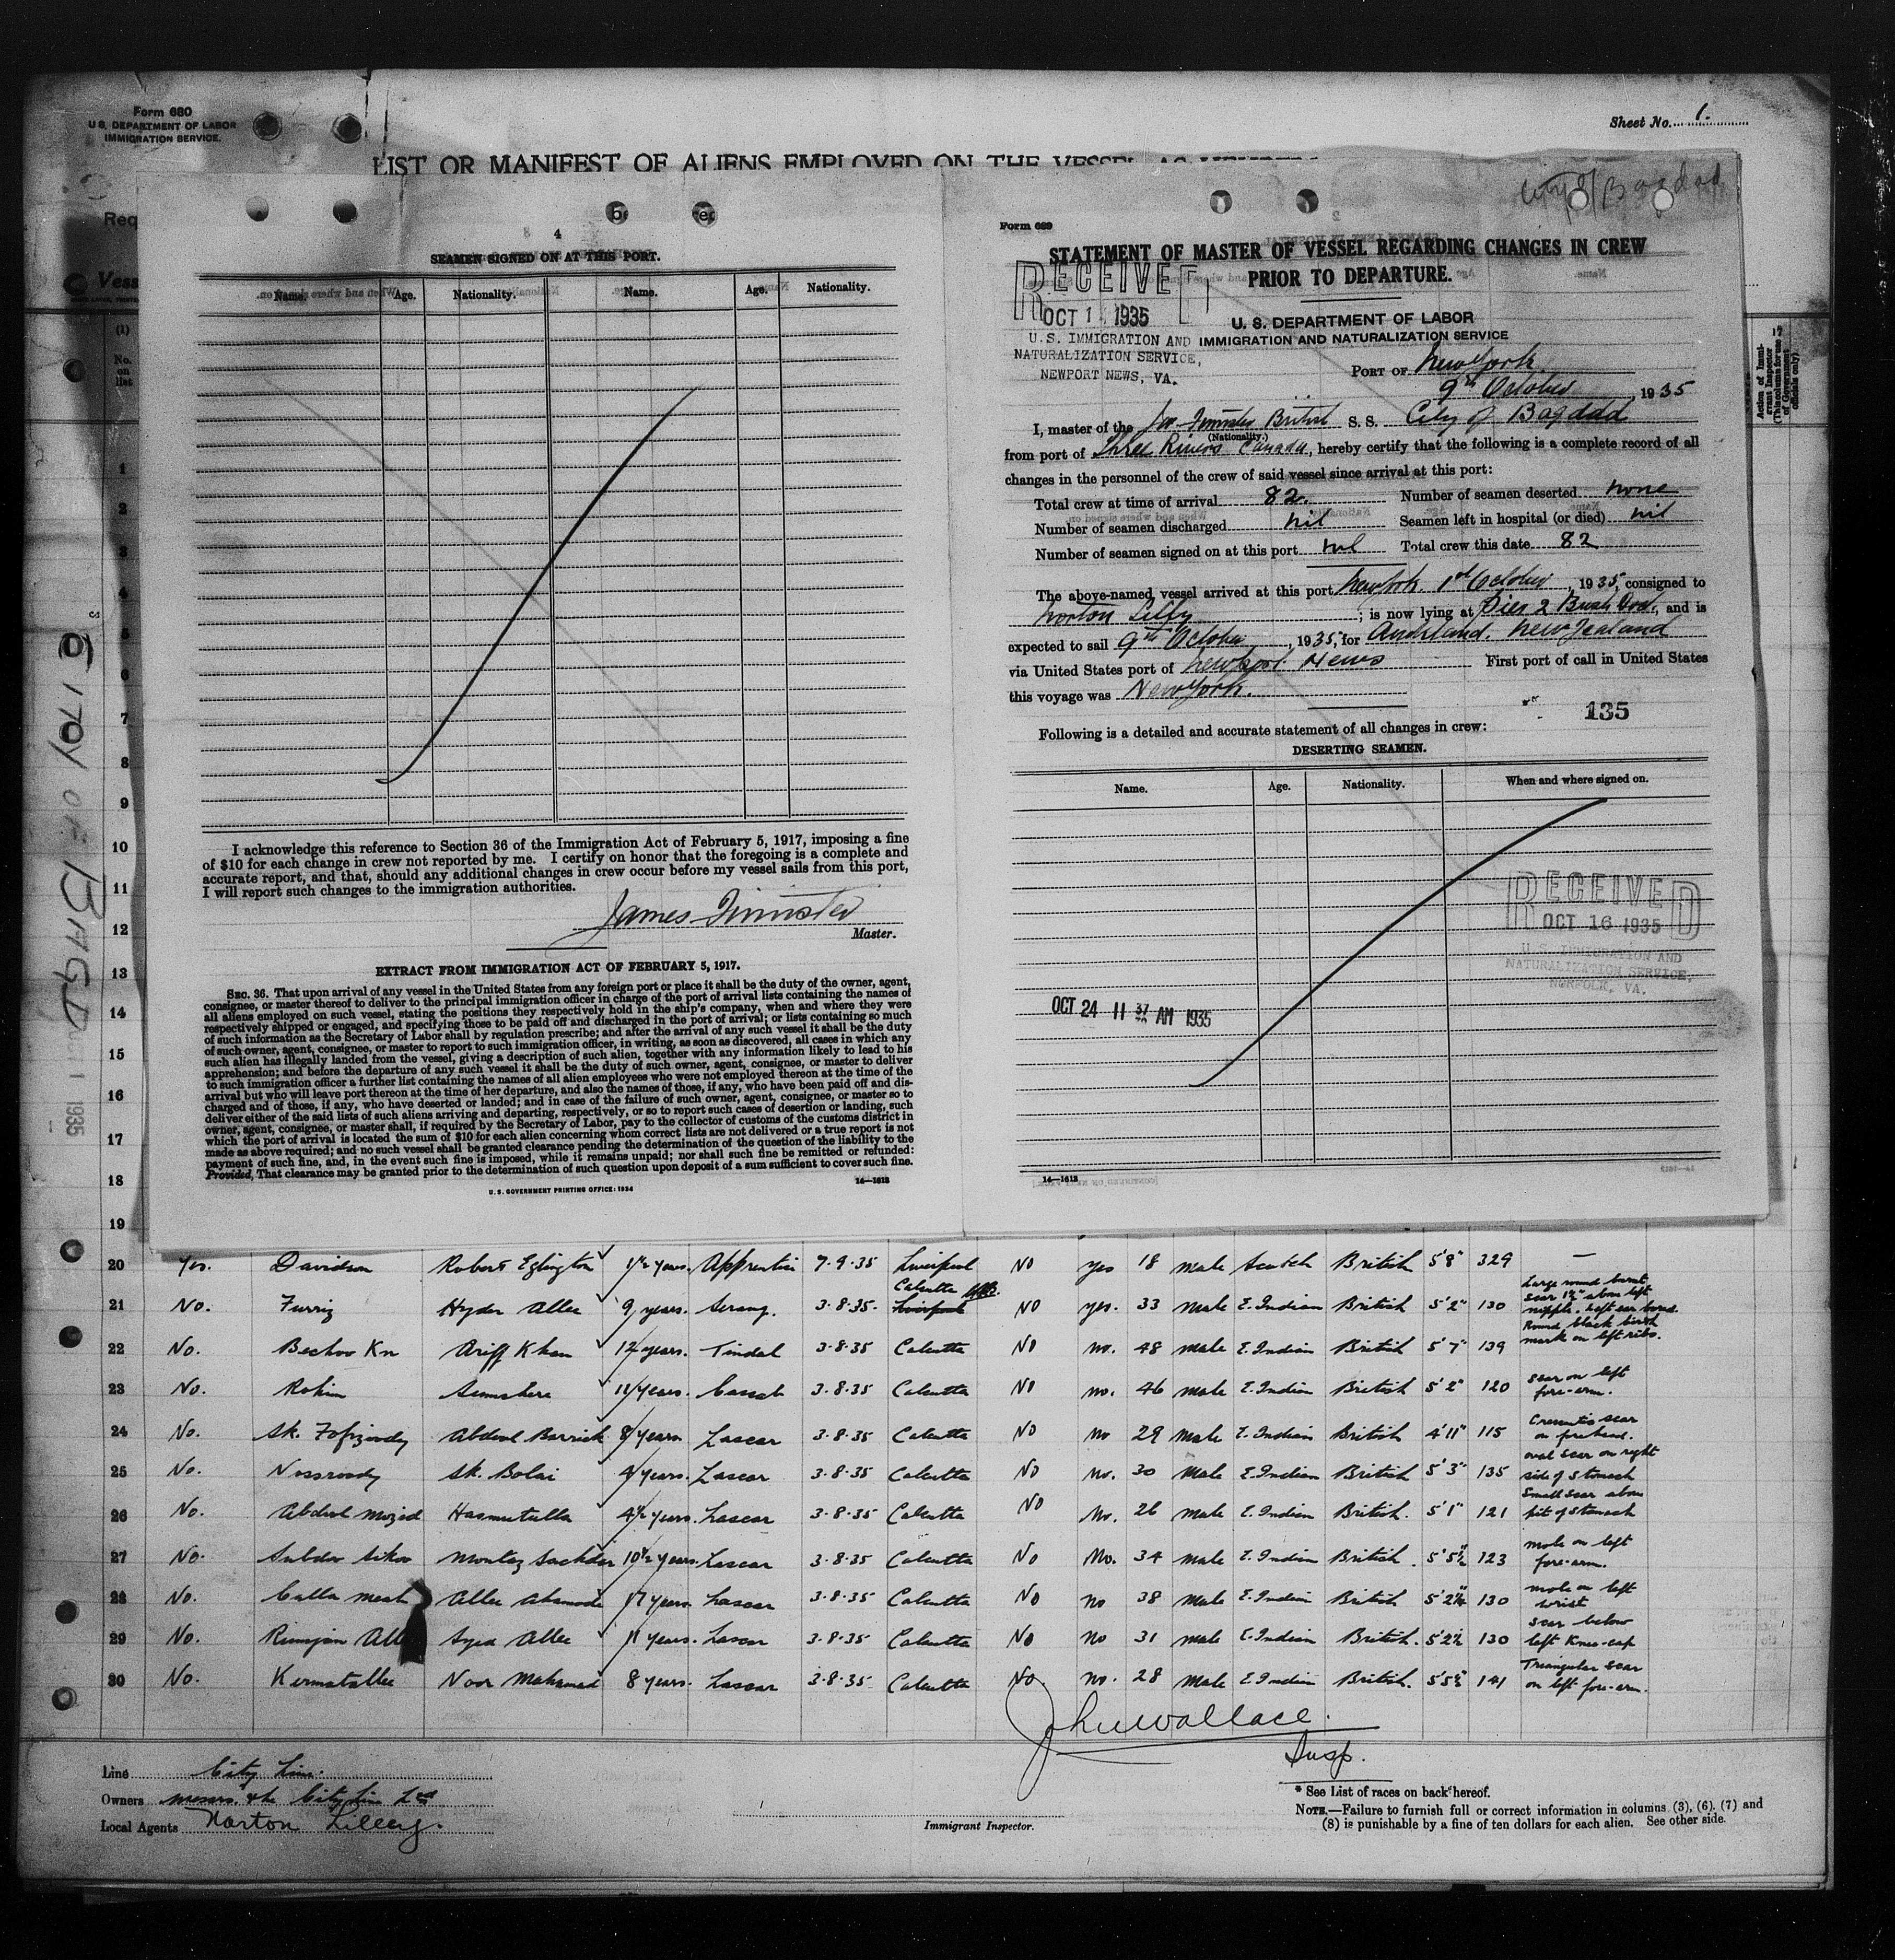 Form 680
U. S. DEPARTMENT OF LABOR
IMMIGRATION SERVICE.
Sheet No. 1.
LIST OR MANIFEST OF ALIENS EMPLOYED ON THE VESSEL AS
Req
Vess
(1)
No.
on
list
1
2
3
4
5
6
7
8
9
10
11
12
13
14
15
16
17
18
19
CITY OF BAGD
1 1935
4
SEAMEN SIGNED ON AT THIS PORT.
Name. Age. Nationality. Name. Age. Nationality.
I acknowledge this reference to Section 36 of the Immigration Act of February 5, 1917, imposing a fine
of $10 for each change in crew not reported by me. I certify on honor that the foregoing is a complete and
accurate report, and that, should any additional changes in crew occur before my vessel sails from this port,
I will report such changes to the immigration authorities.
James
Master.
EXTRACT FROM IMMIGRATION ACT OF FEBRUARY 5, 1917.
SEC. 36. That upon arrival of any vessel in the United States from any foreign port or place it shall be the duty of the owner, agent,
consignee, or master thereof to deliver to the principal immigration officer in charge of the port of arrival lists containing the names of
all aliens employed on such vessel, stating the positions they respectively hold in the ship's company, when and where they were
respectively shipped or engaged, and specifying those to be paid off and discharged in the port of arrival; or lists containing so much
of such information as the Secretary of Labor shall by regulation prescribe; and after the arrival of any such vessel it shall be the duty
of such owner, agent, consignee, or master to report to such immigration officer, in writing, as soon as discovered, all cases in which any
such alien has illegally landed from the vessel, giving a description of such alien, together with any information likely to lead to his
apprehension; and before the departure of any such vessel it shall be the duty of such owner, agent, consignee, or master to deliver
to such immigration officer a further list containing the names of all alien employees who were not employed thereon at the time of the
arrival but who will leave port thereon at the time of her departure, and also the names of those, if any, who have been paid off and dis-
charged and of those, if any, who have deserted or landed; and in case of the failure of such owner, agent, consignee, or master so to
deliver either of the said lists of such aliens arriving and departing, respectively, or so to report such cases of desertion or landing, such
owner, agent, consignee, or master shall, if required by the Secretary of Labor, pay to the collector of customs of the customs district in
which the port of arrival is located the sum of $10 for each alien concerning whom correct lists are not delivered or a true report is not
made as above required; and no such vessel shall be granted clearance pending the determination of the question of the liability to the
payment of such fine, and, in the event such fine is imposed, while it remains unpaid; nor shall such fine be remitted or refunded:
Provided, That clearance may be granted prior to the determination of such question upon deposit of a sum sufficient to cover such fine.
U. S. GOVERNMENT PRINTING OFFICE: 1934
14—1613
City of Bagdad
Form 689
STATEMENT OF MASTER OF VESSEL REGARDING CHANGES IN CREW
PRIOR TO DEPARTURE.
RECEIVED
OCT 1 1935
U.S. IMMIGRATION AND
NATURALIZATION SERVICE,
NEWPORT NEWS, VA.
U. S. DEPARTMENT OF LABOR
IMMIGRATION AND NATURALIZATION SERVICE
PORT OF New York
9th October, 1935
I, master of the British S. S. City of Bagdad
(Nationality.)
from port of Three Rivers Canada, hereby certify that the following is a complete record of all
changes in the personnel of the crew of said vessel since arrival at this port:
Total crew at time of arrival 82. Number of seamen deserted none
Number of seamen discharged nil Seamen left in hospital (or died) nil
Number of seamen signed on at this port nil Total crew this date 82
The above-named vessel arrived at this port New York 1st October, 1935, consigned to
Norton Lilly; is now lying at Pier 2 Bush Dock, and is
expected to sail 9th October, 1935, for Auckland. New Zealand
via United States port of Newport News First port of call in United States
this voyage was New York.
135
Following is a detailed and accurate statement of all changes in crew:
DESERTING SEAMEN.
Name. Age. Nationality. When and where signed on.
RECEIVED
OCT 16 1935
U.S. IMMIGRATION AND
NATURALIZATION SERVICE,
NORFOLK, VA.
OCT 24 11 37 AM 1935
14—1613
17
Action of Immi-
grant Inspector
(This column for use
of Government
officials only)
20 Yes. Davidson Robert Eglington 1½ years. Apprentice 7.9.35 Liverpool No yes 18 male Scotch British 5'8" 329 —
21 No. Furriz Hyder Allee 9 years. Serang. 3.8.35. Calcutta Liverpool No yes. 33 male E. Indian British 5'2" 130 Large round burnt scar 1½" above left nipple. Left ear bored.
22 No. Bechoo Kn Ariff Khan 12 years. Tindal 3.8.35 Calcutta No no. 48 male E. Indian British 5'7" 139 Round black birth mark on left ribs.
23 No. Rohim 11 years. Cassab 3.8.35 Calcutta No no. 46 male E. Indian British 5'2" 120 scar on left fore-arm.
24 No. Sk. Abdool Barrick 8 years Lascar 3.8.35 Calcutta No no 29 male E. Indian British 4'11" 115 scar on forehead.
25 No. Nossroody Sk. Bolai 4 years. Lascar 3.8.35 Calcutta No no. 30 male E. Indian British 5'3" 135 oval scar on right side of stomach
26 No. Abdool Mozid Hasmutulla 4½ years. Lascar 3.8.35 Calcutta No no. 26 male E. Indian British. 5'1" 121 Small scar above pit of stomach
27 No. Montaz 10½ years. Lascar 3.8.35 Calcutta No No. 34 male E. Indian British. 5'5½" 123 mole on left fore-arm.
28 No. Calla Meah Allee 17 years. Lascar 3.8.35 Calcutta No no 38 male E. Indian British 5'2¼" 130 mole on left wrist
29 No. Rumjan All Syed Allee 11 years. Lascar 3.8.35 Calcutta No no 31 male E. Indian British. 5'2½" 130 scar below left knee-cap
30 No. Kermatallee Noor Mahamad 8 years. Lascar 3.8.35 Calcutta No. no. 28 male E. Indian British. 141 Triangular scar on left fore-arm.
John Wallace.
Insp.
Line City Line.
Owners Messrs. the City Line Ltd
Local Agents Norton Lilley.
Immigrant Inspector.
* See List of races on back hereof.
NOTE.—Failure to furnish full or correct information in columns (3), (6), (7) and
(8) is punishable by a fine of ten dollars for each alien. See other side.